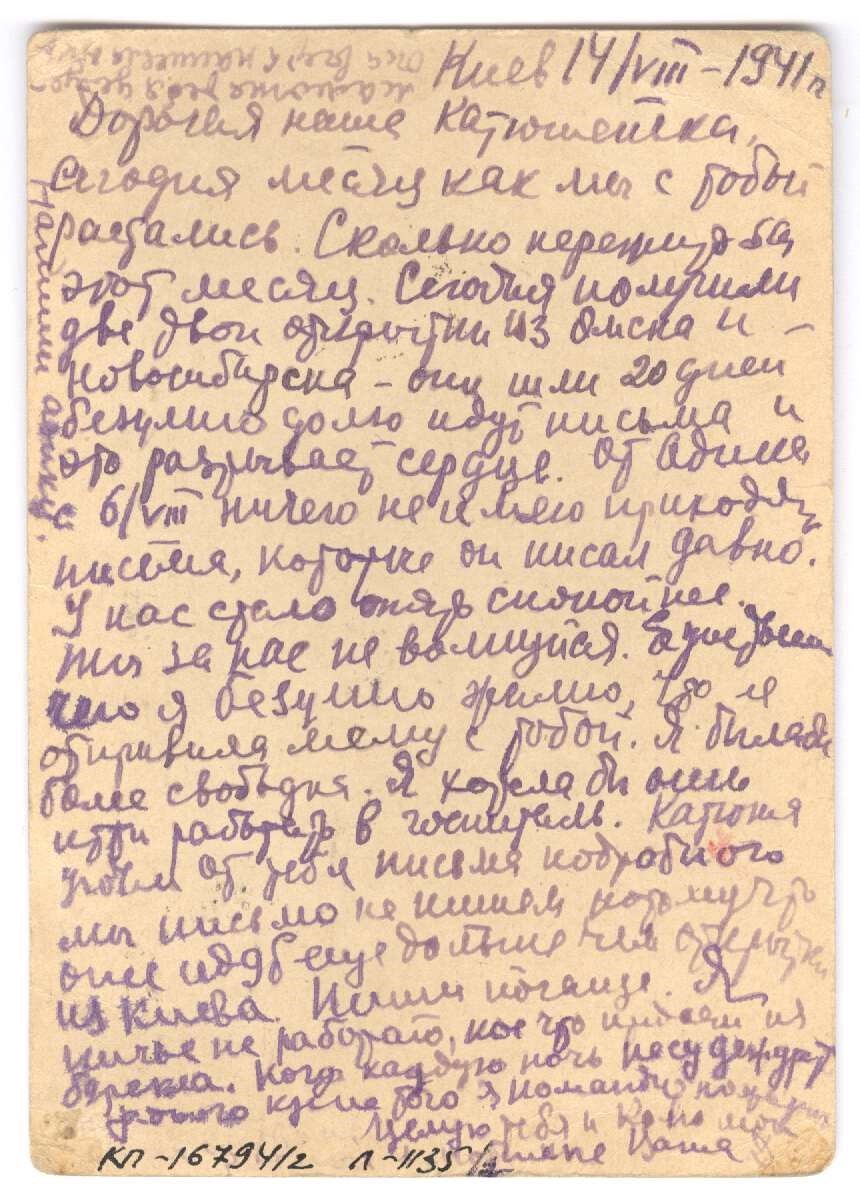 Киев 14/VIII – 1941 г
Дорогая наша Катюшенька,
сегодня месяц как мы с тобой
растались. Сколько пережито за
этот месяц. Сегодня получили
две твои открытки из Омска и
Новосибирска – они шли 20 дней
безумно долго идут письма и
это разрывает сердце. От Адика
с 6/VIII ничего не имею приходят
письма, которые он писал давно.
У нас стало опять спокойнее.
Ты за нас не волнуйся. Единствен
что я безумно жалею, что не
отправила маму с тобой. Я была бы
более свободна. Я хотела бы
итти работать в госпиталь. Катюня
ждем от тебя письма подробного
мы письмо не пишем потому что
они идут еще дольше чем открытки
из Киева. Пиши почаще. Я
ничего не работаю, кое что пишем из
Кого каждую ночь несу дежурст
кроме того я командир
Целую тебя и
Ваша
Напиши
КП-16794/2 Л-1135/2